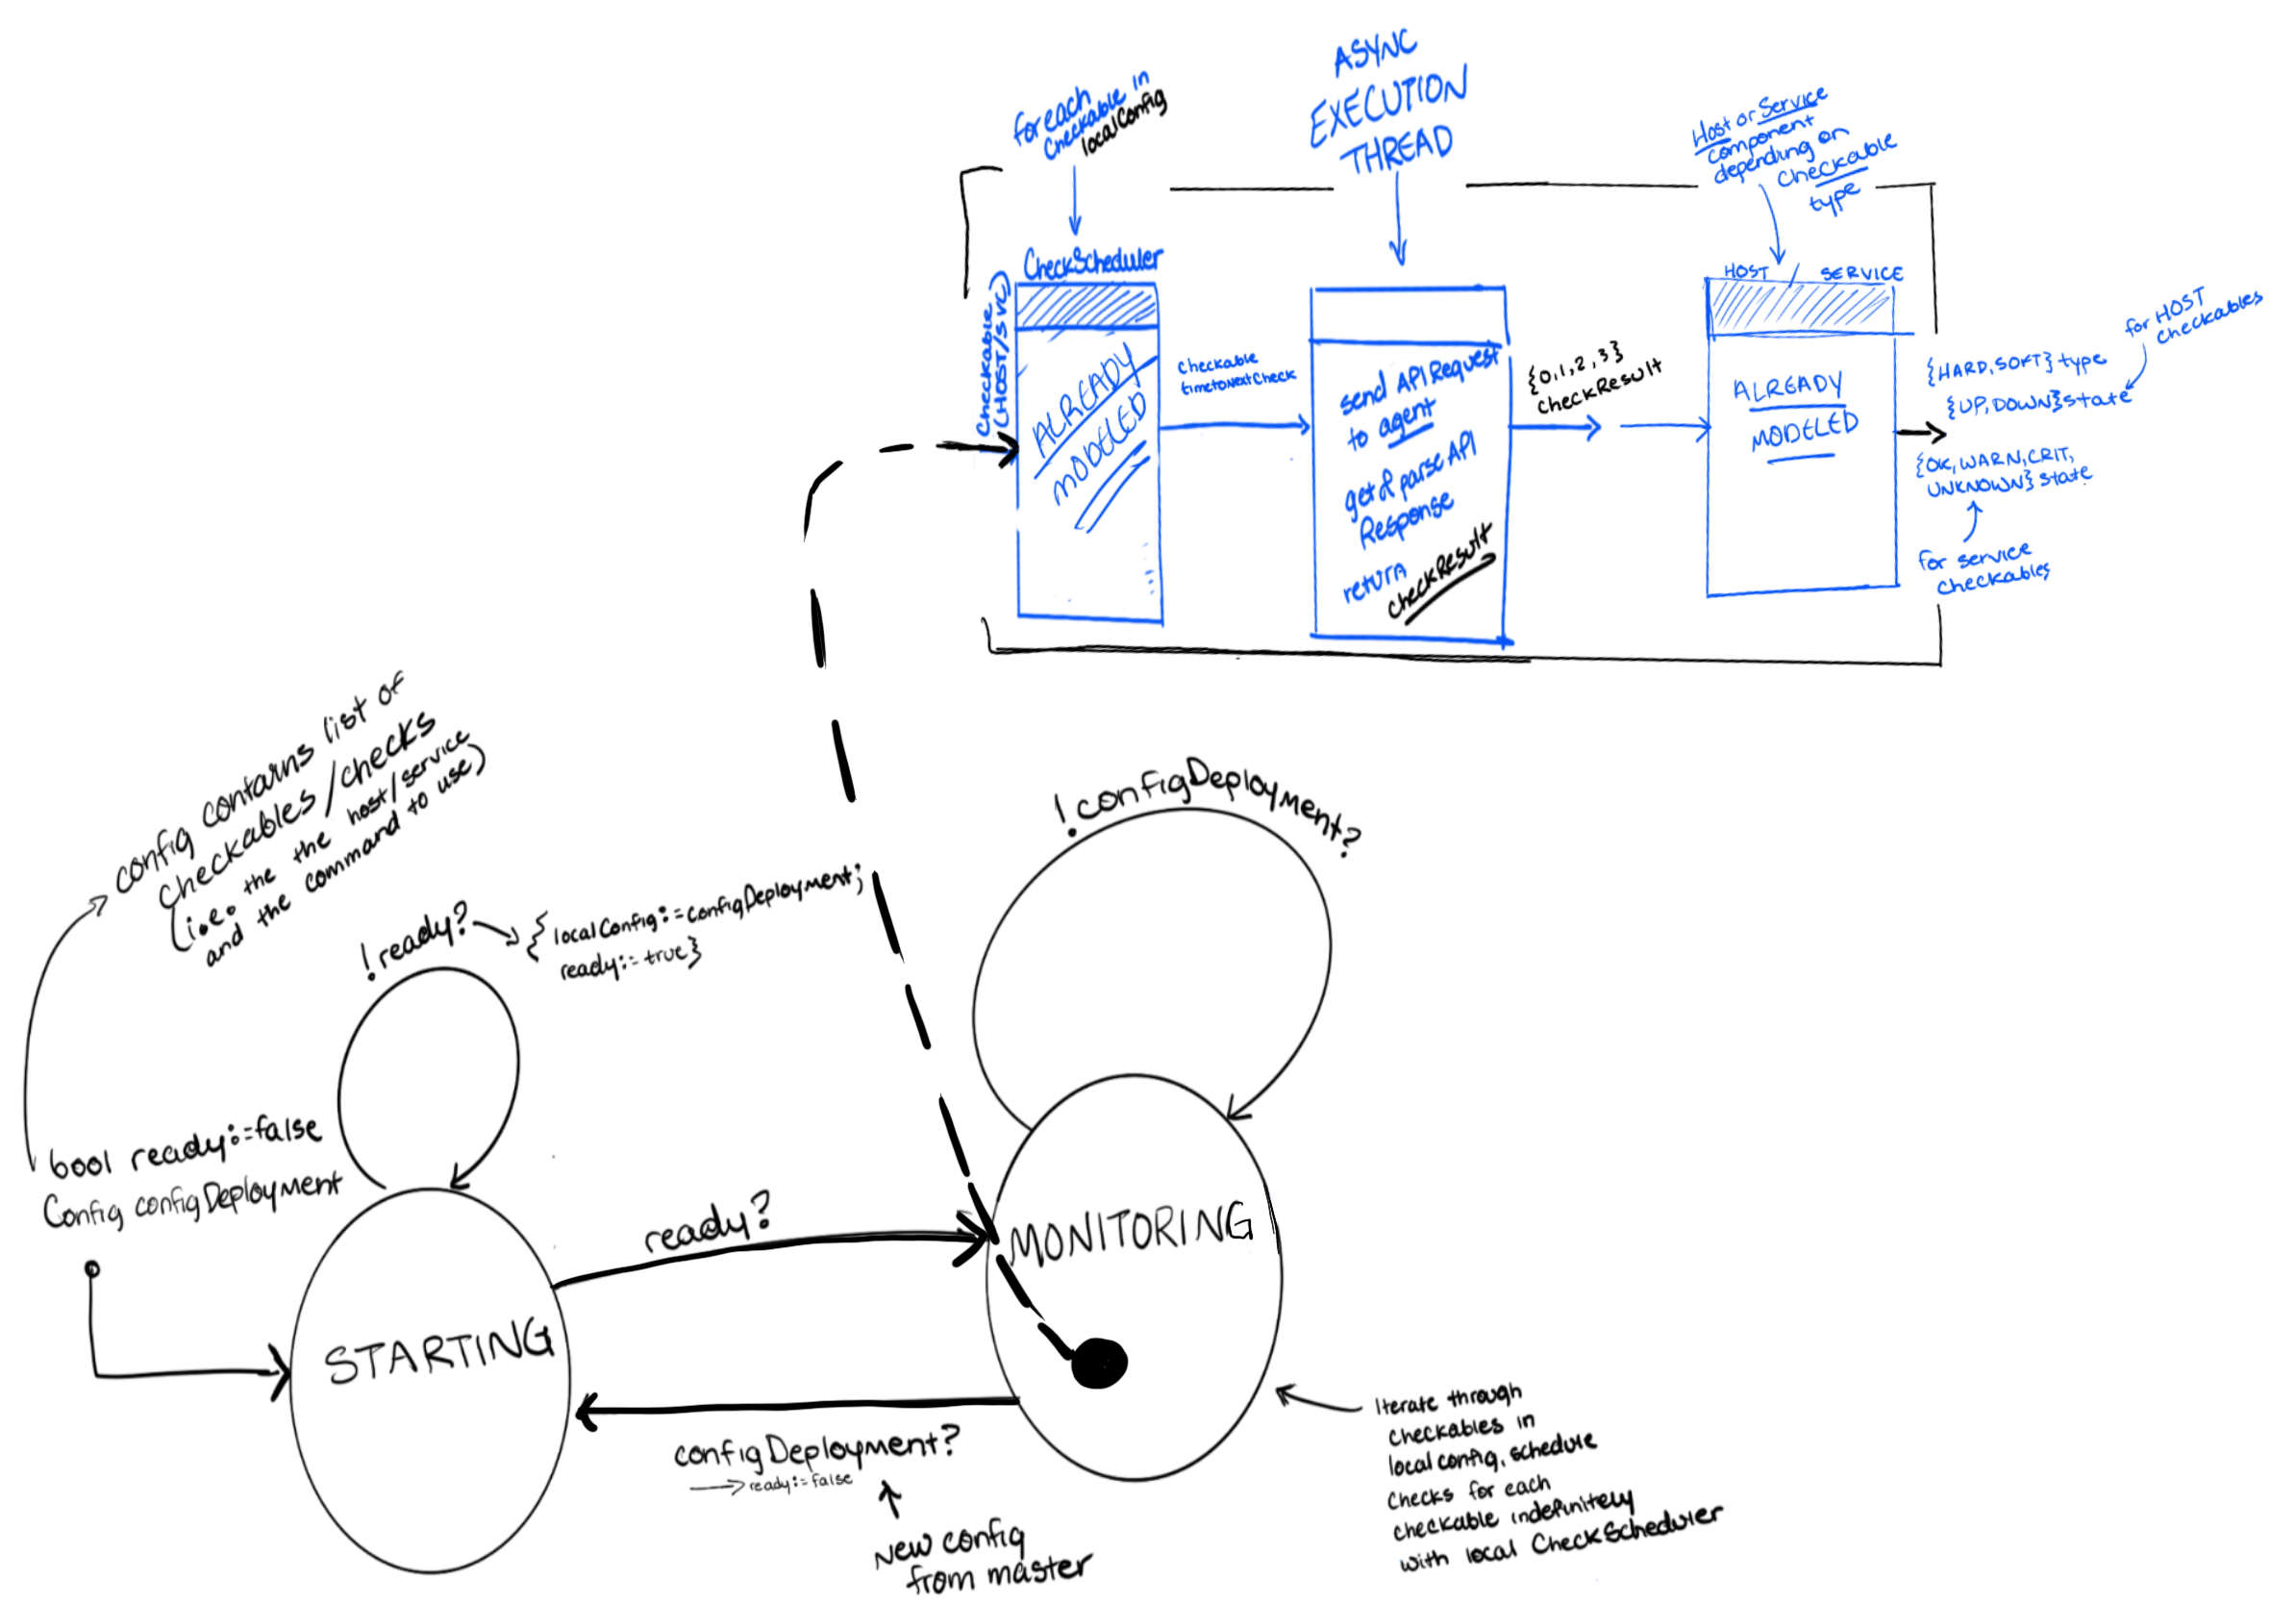 for each
checkable in
localConfig
ASYNC
EXECUTION
THREAD
Host or Service
component
depending on
checkable
type
CheckScheduler
Checkable
(HOST/SVC)
ALREADY
MODELED
checkable
timetoNextCheck
send API Request
to agent
get & parse API
Response
return
checkResult
{0,1,2,3}
checkResult
HOST / SERVICE
ALREADY
MODELED
for HOST
checkables
{HARD, SOFT} type
{UP, DOWN} state
{OK, WARN, CRIT,
UNKNOWN} state
for service
checkables
config contains list of
checkables/checks
(i.e. the the host/service
and the command to use)
!ready?
{localConfig:=configDeployment;
ready:=true}
!configDeployment?
bool ready:=false
Config configDeployment
ready?
STARTING
MONITORING
configDeployment?
ready:=false
New config
from master
Iterate through
checkables in
local config, schedule
checks for each
checkable indefinitely
with local CheckScheduler